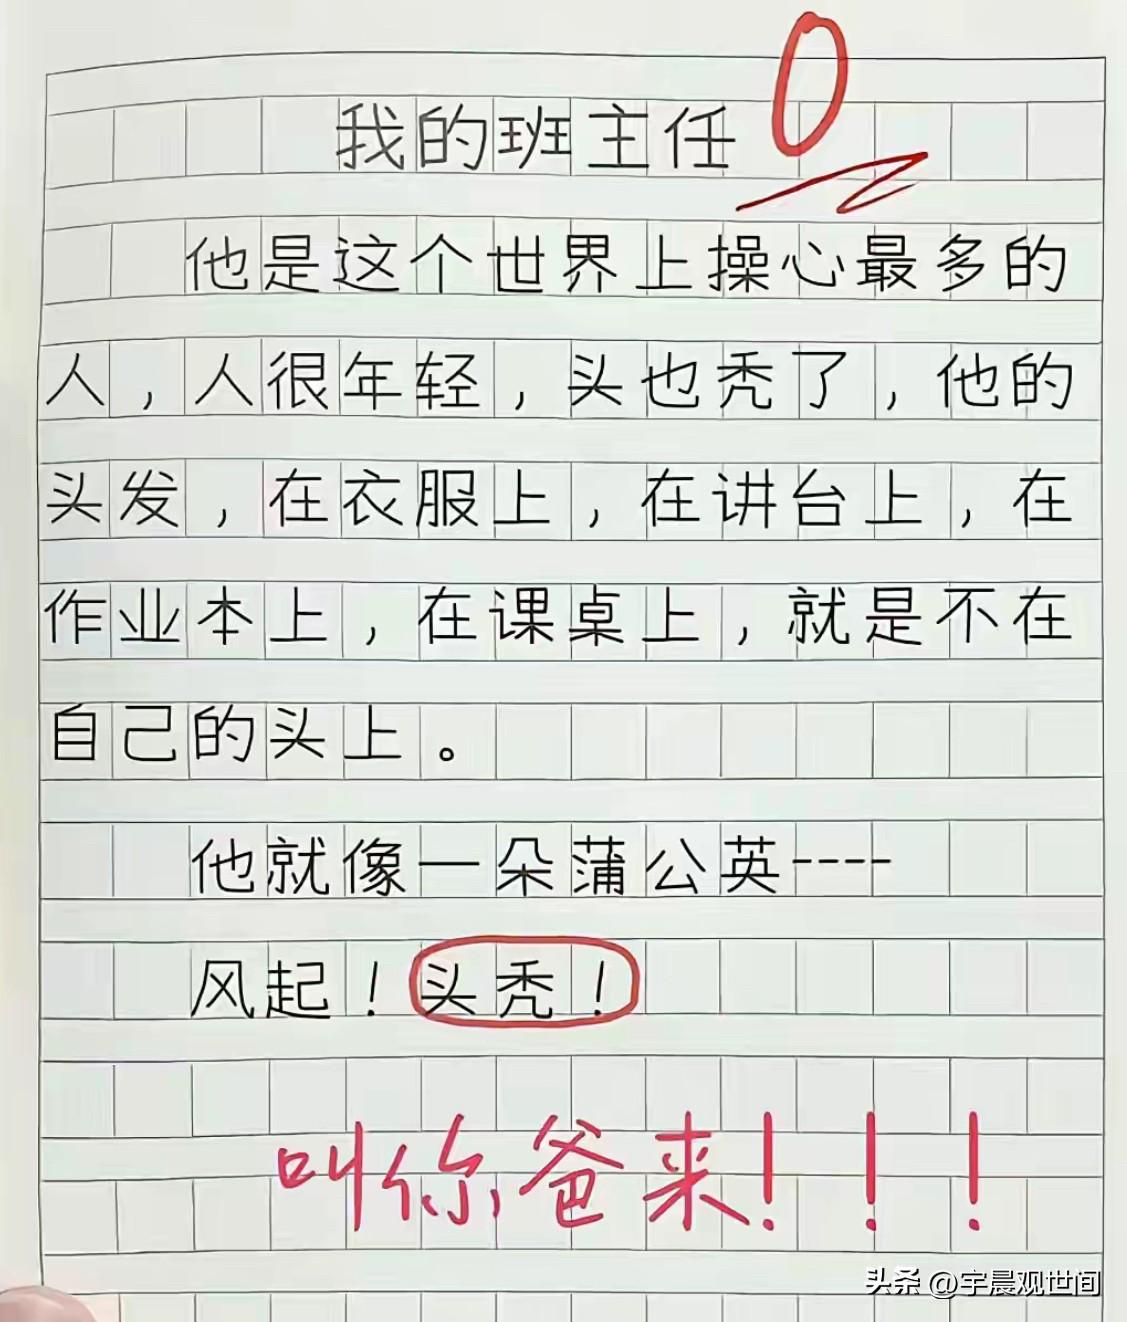 我的班主任 0
他是这个世界上操心最多的
人，人很年轻，头也秃了，他的
头发，在衣服上，在讲台上，在
作业本上，在课桌上，就是不在
自己的头上。
他就像一朵蒲公英----
风起！头秃！
叫你爸来！！！
头条 @宇晨观世间